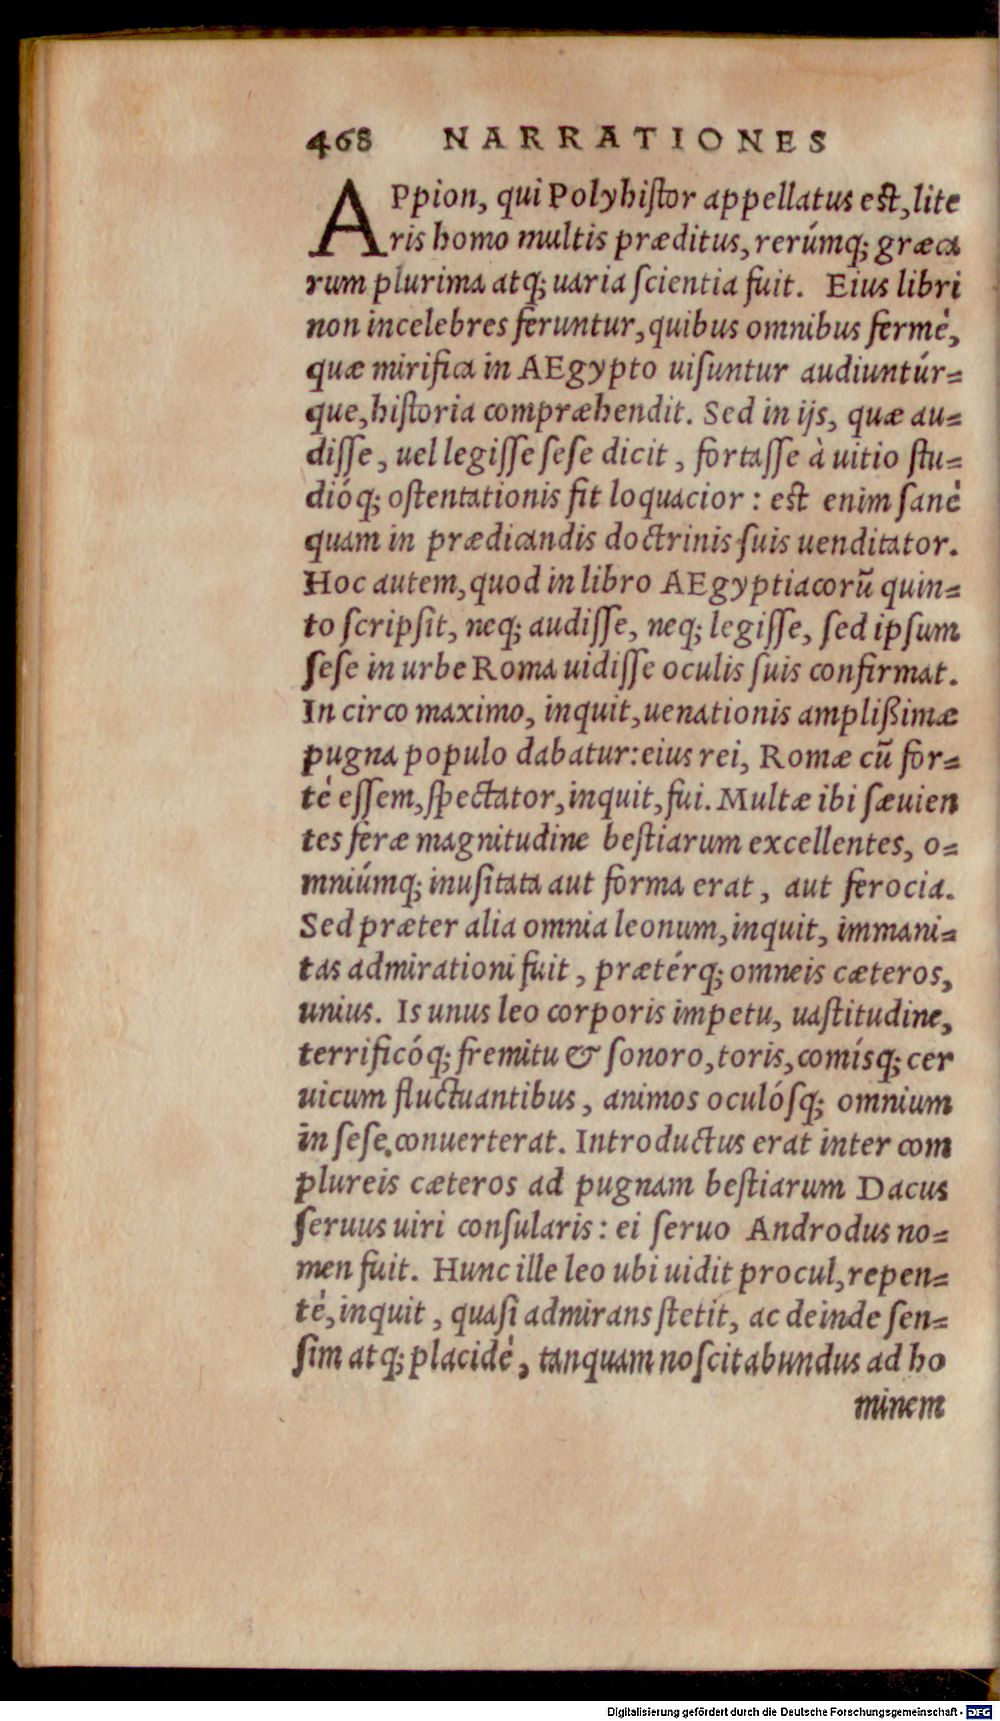 468 NARRATIONES
APpion, qui Polyhistor appellatus est, lite
ris homo multis præditus, rerúmq; græca
rum plurima atq; uaria scientia fuit. Eius libri
non incelebres feruntur, quibus omnibus fermè,
quæ mirifica in AEgypto uisuntur audiuntúr=
que, historia compræhendit. Sed in ijs, quæ au=
disse, uel legisse sese dicit, fortasse à uitio stu=
dióq; ostentationis fit loquacior: est enim sanè
quam in prædicandis doctrinis suis uenditator.
Hoc autem, quod in libro AEgyptiacorū quin=
to scripsit, neq; audisse, neq; legisse, sed ipsum
sese in urbe Roma uidisse oculis suis confirmat.
In circo maximo, inquit, uenationis amplißimæ
pugna populo dabatur: eius rei, Romæ cū for=
tè essem, spectator, inquit, fui. Multæ ibi sæuien
tes feræ magnitudine bestiarum excellentes, o=
mniúmq; inusitata aut forma erat, aut ferocia.
Sed præter alia omnia leonum, inquit, immani=
tas admirationi fuit, prætérq; omneis cæteros,
unius. Is unus leo corporis impetu, uastitudine,
terrificóq; fremitu & sonoro, toris, comísq; cer
uicum fluctuantibus, animos oculósq; omnium
in sese conuerterat. Introductus erat inter com
plureis cæteros ad pugnam bestiarum Dacus
seruus uiri consularis: ei seruo Androdus no=
men fuit. Hunc ille leo ubi uidit procul, repen=
tè, inquit, quasi admirans stetit, ac deinde sen=
sim atq; placidè, tanquam noscitabundus ad ho
minem
Digitalisierung gefördert durch die Deutsche Forschungsgemeinschaft - DFG